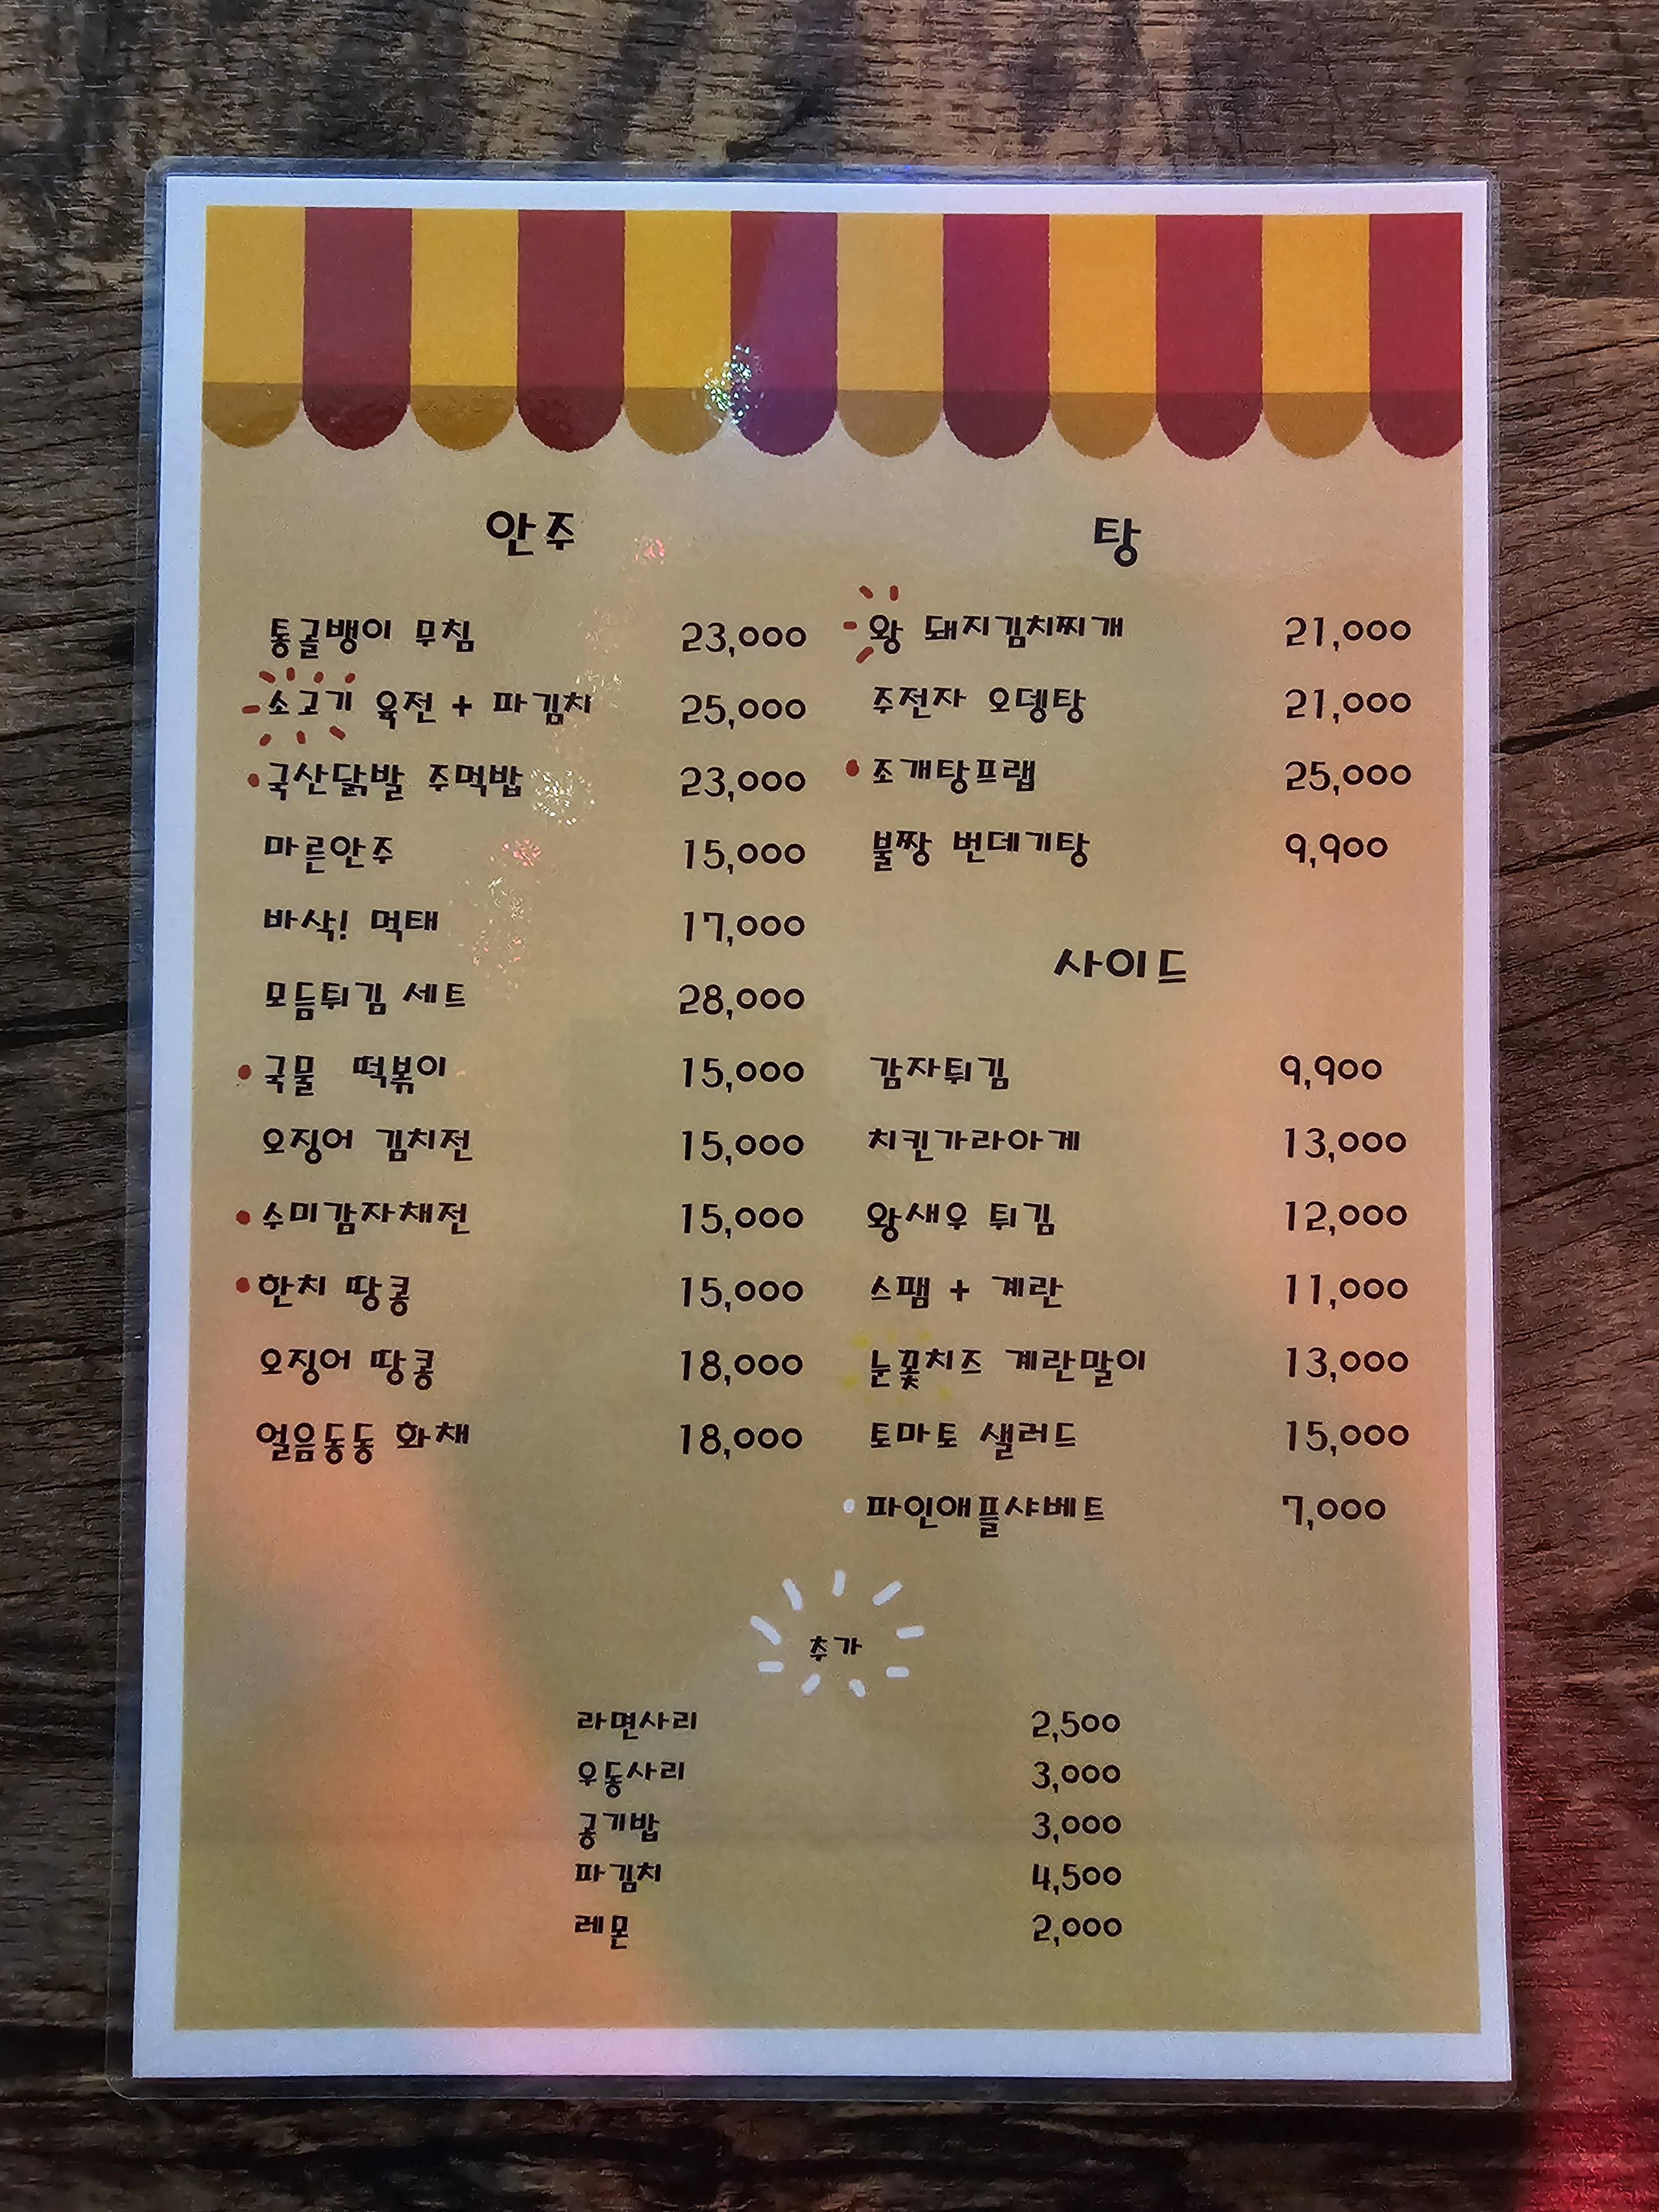 안주
통골뱅이 무침 23,000
소고기 육전 + 파김치 25,000
국산닭발 주먹밥 23,000
마른안주 15,000
바삭! 먹태 17,000
모듬튀김 세트 28,000
국물 떡볶이 15,000
오징어 김치전 15,000
수미감자채전 15,000
한치 땅콩 15,000
오징어 땅콩 18,000
얼음동동 화채 18,000
탕
왕 돼지김치찌개 21,000
주전자 오뎅탕 21,000
조개탕프랩 25,000
불짱 번데기탕 9,900
사이드
감자튀김 9,900
치킨가라아게 13,000
왕새우 튀김 12,000
스팸 + 계란 11,000
눈꽃치즈 계란말이 13,000
토마토 샐러드 15,000
파인애플샤베트 7,000
추가
라면사리 2,500
우동사리 3,000
공기밥 3,000
파김치 4,500
레몬 2,000